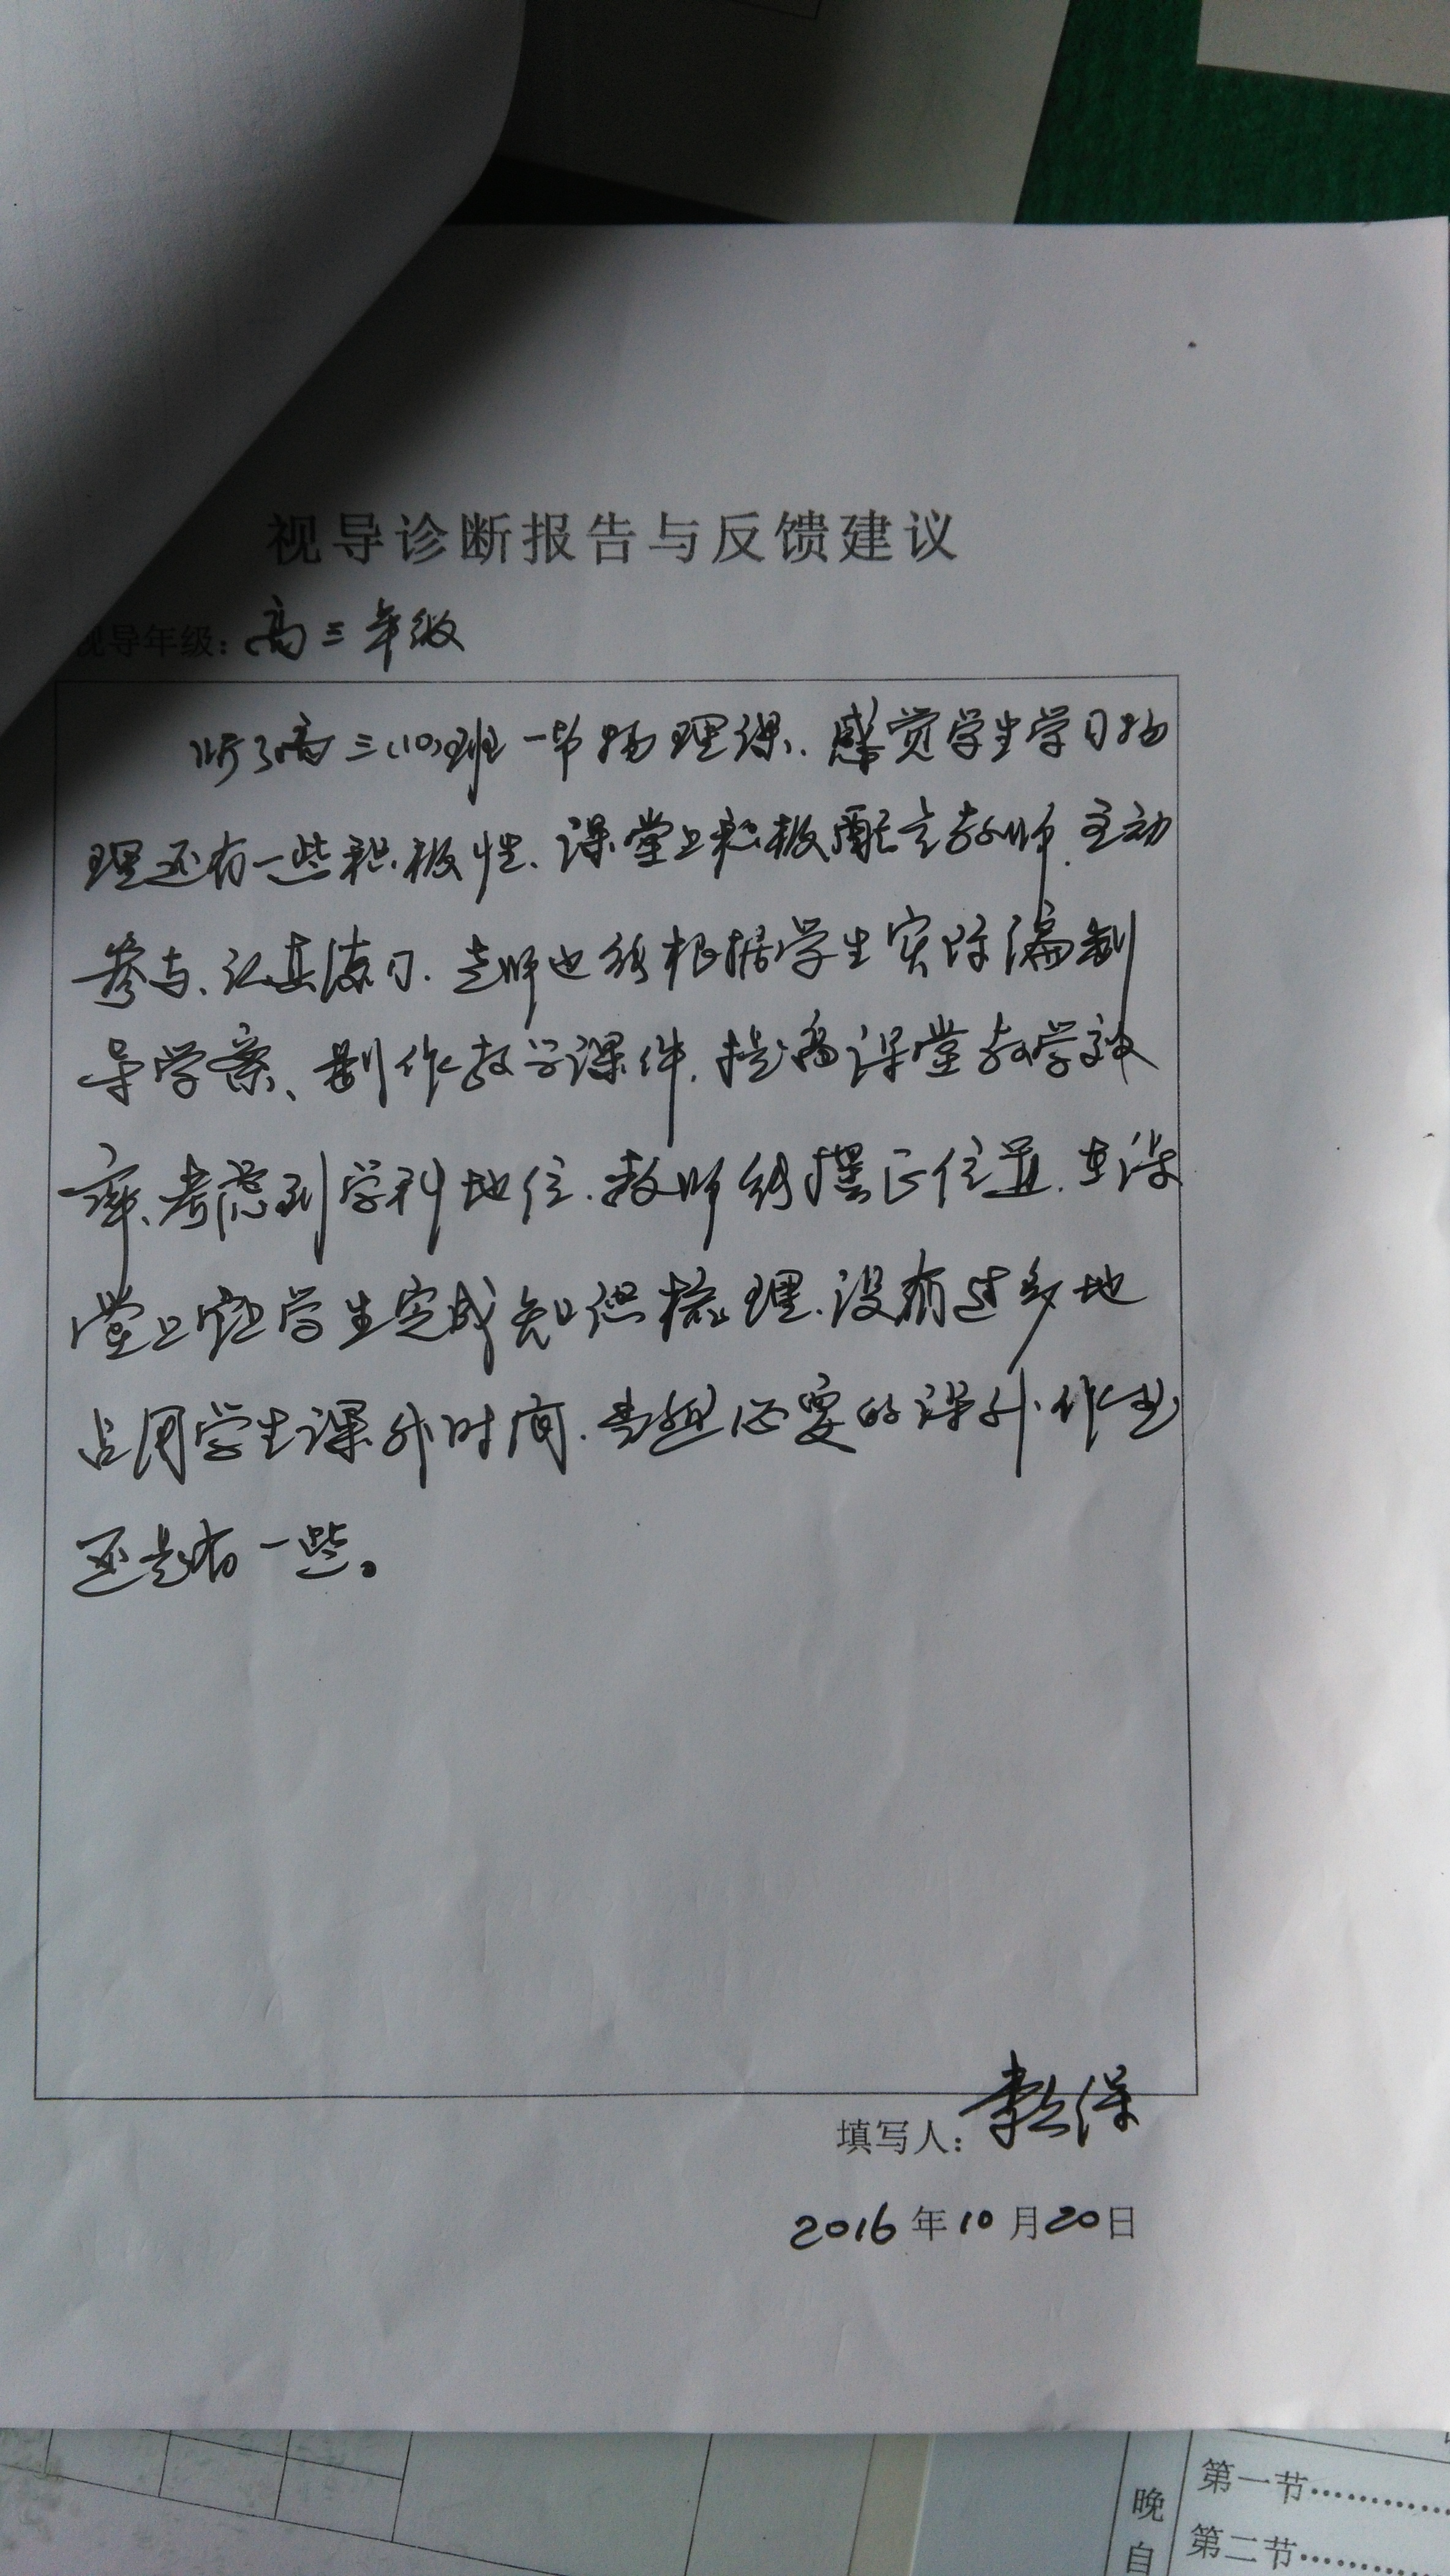 视导诊断报告与反馈建议
视导年级：高三年级
听了高三(10)班一节物理课，感觉学生学习物
理还有一些积极性，课堂上积极配合教师，主动
参与、认真练习，老师也能根据学生实际编制
导学案、制作教学课件，提高课堂教学效
率，考虑到学科地位，教师能摆正位置，在课
堂上让学生完成知识梳理，没有过多地
占用学生课外时间，当然必要的课外作业
还是有一些。
填写人：
2016年10月20日
晚
自
第一节
第二节